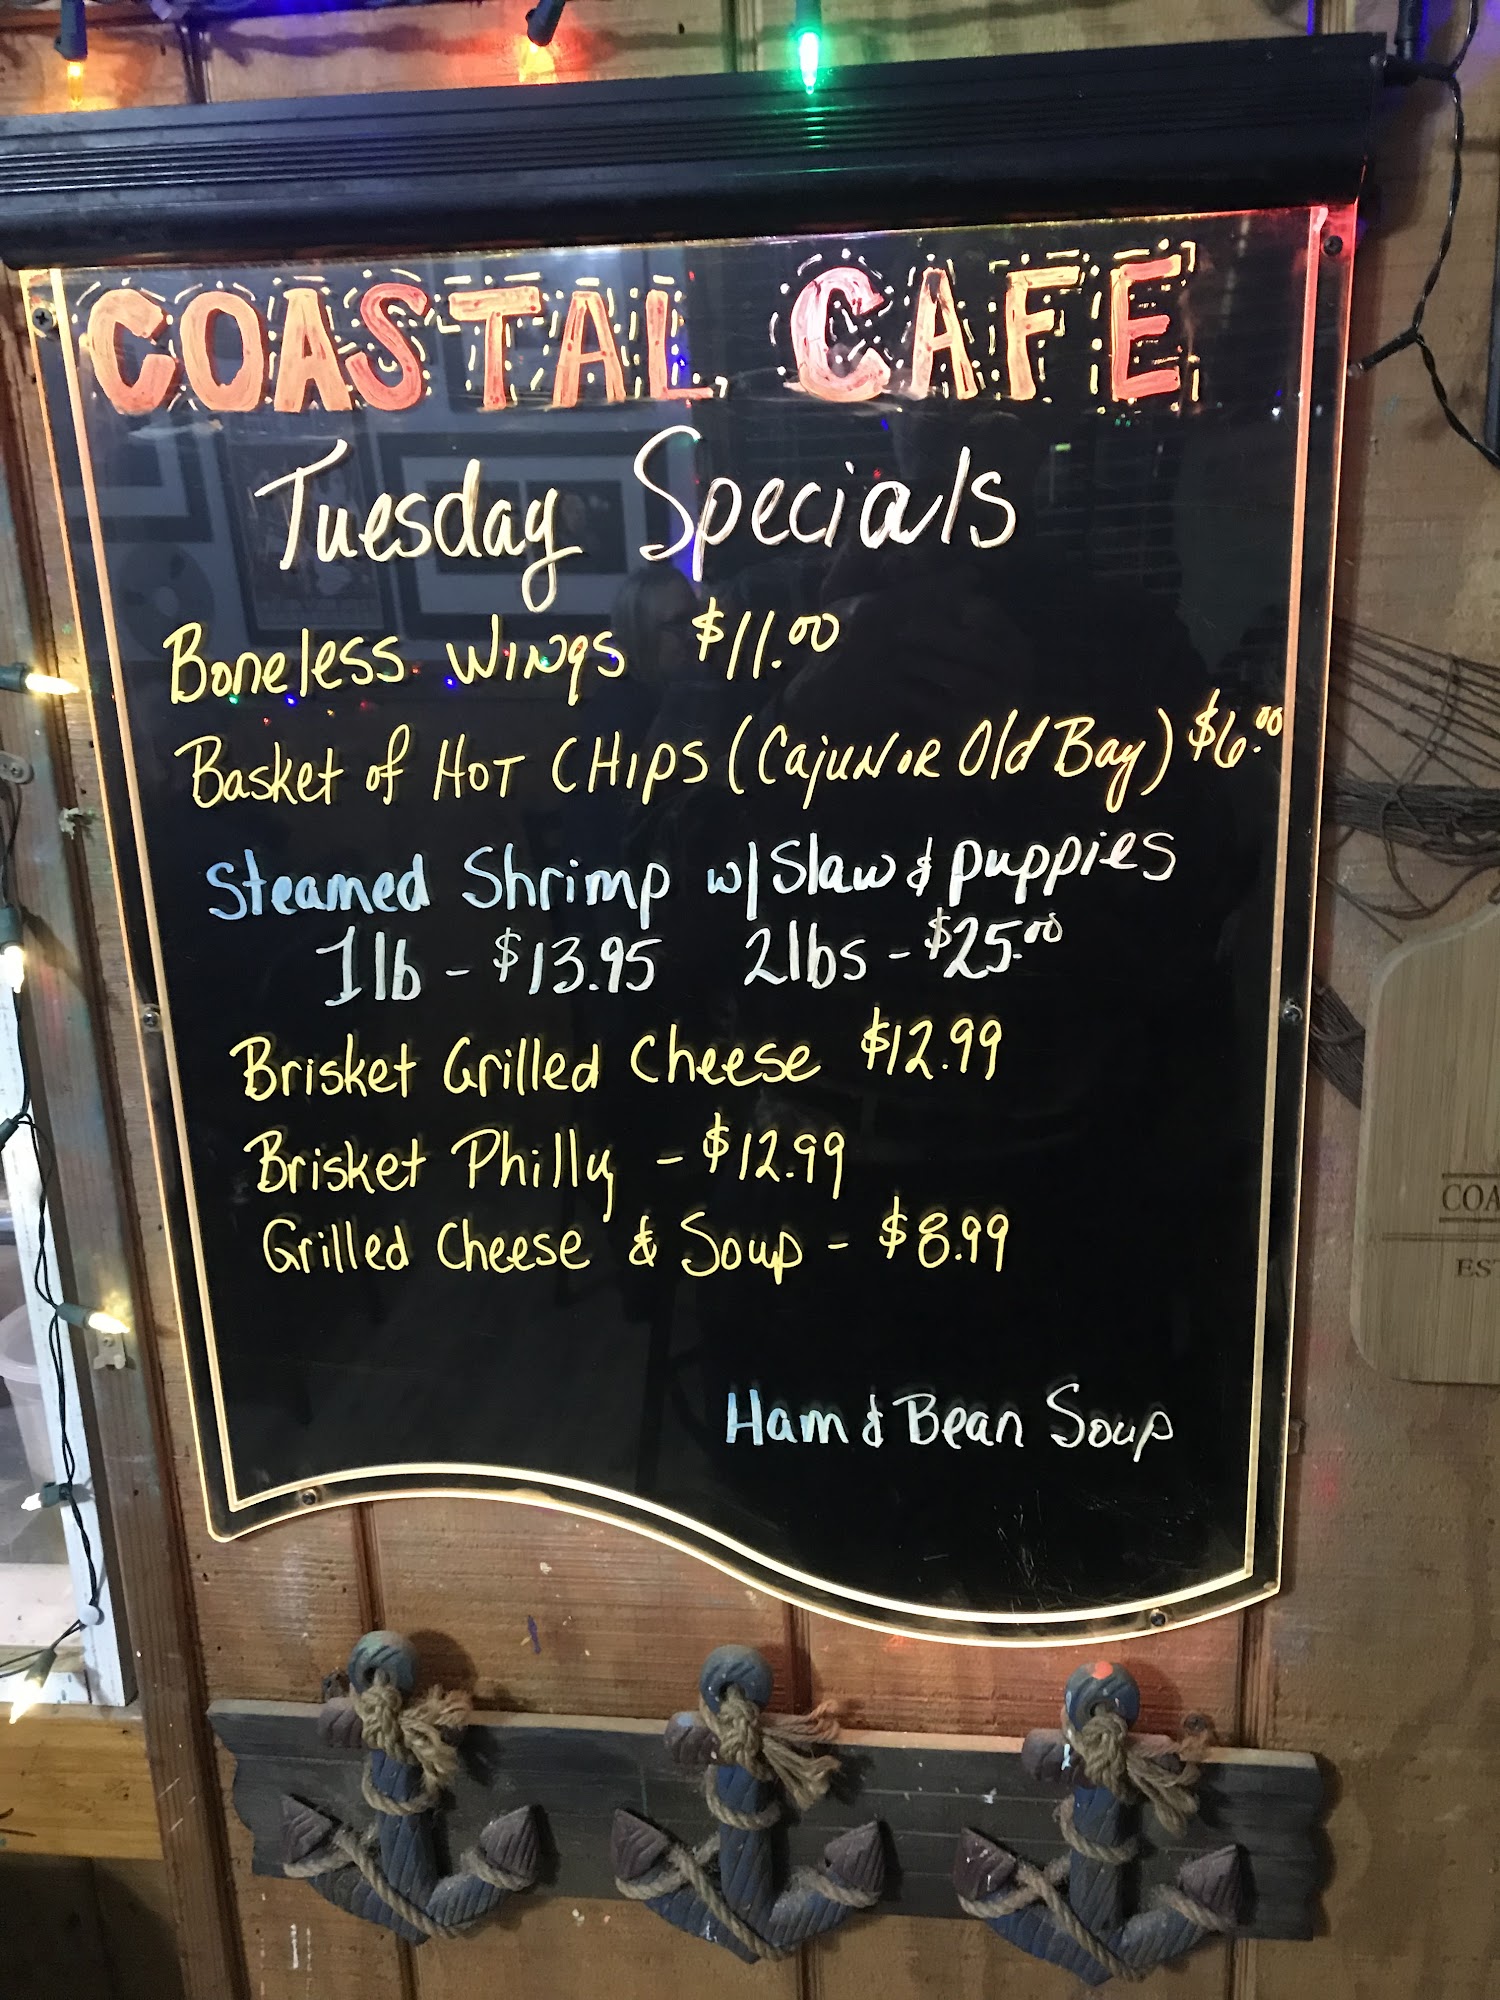 COASTAL CAFE
Tuesday Specials
Boneless Wings $11.00
Basket of HOT CHIPS (Cajun OR Old Bay) $6.00
Steamed Shrimp w/ Slaw & puppies
1lb - $13.95 2lbs - $25.00
Brisket Grilled Cheese $12.99
Brisket Philly - $12.99
Grilled Cheese & Soup - $8.99
Ham & Bean Soup
COA
EST